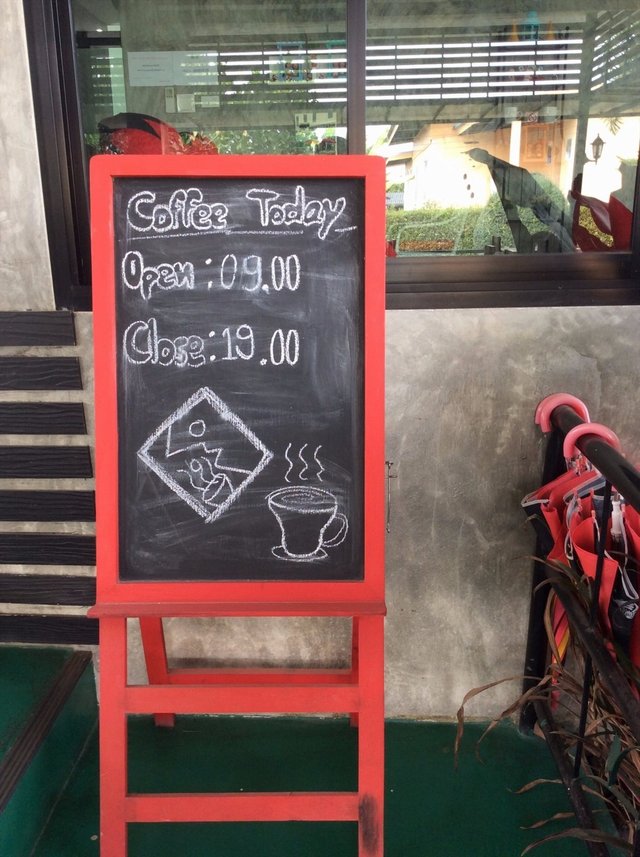 Coffee Today
Open : 09.00
Close : 19.00